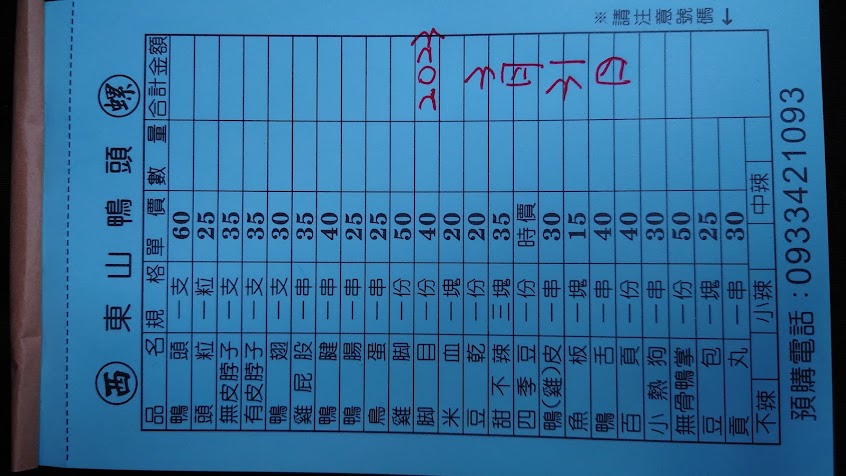 西 東山鴨頭 螺
品名 規格 單價 數量 合計金額
鴨頭 一支 60
頭粒 一粒 25
無皮脖子 一支 35
有皮脖子 一支 35
鴨翅 一支 30
雞屁股 一串 35
鴨腱 一串 40
鴨腸 一串 25
鳥蛋 一串 25
雞腳 一份 50
腳目 一份 40
米血 一塊 20
豆乾 一份 20
甜不辣 三塊 35
四季豆 一份 時價
鴨(雞)皮 一串 30
魚板 一塊 15
鴨舌 一串 40
百頁 一份 40
小熱狗 一串 30
無骨鴨掌 一份 50
豆包 一塊 25
貢丸 一串 30
2023
3月31日
不辣 小辣 中辣
預購電話:0933421093
※請注意號碼↓